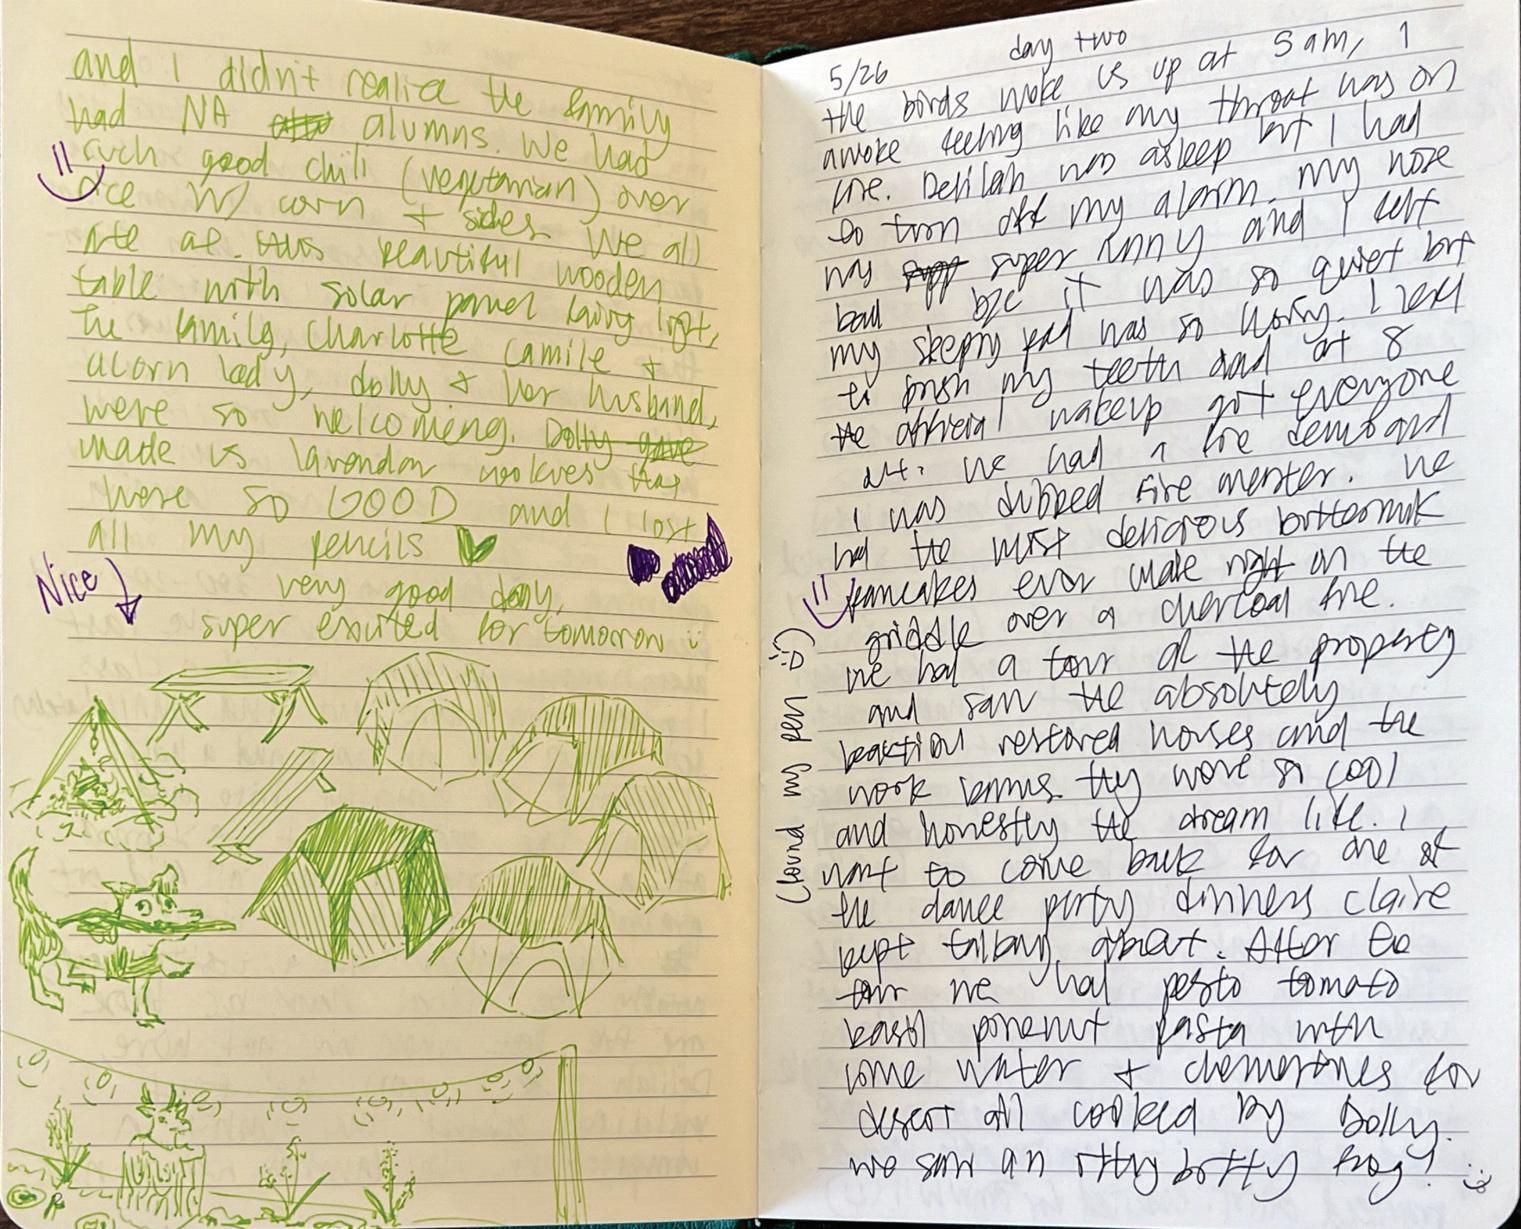 and I didn't realize the family
had NA alumns. We had
such good chili (vegetarian) over
rice w/ corn + sides. We all
ate at this beautiful wooden
table with solar panel fairy light,
the family, Charlotte Camile +
acorn lady, dolly & her husband,
were so welcoming. Dolly gave
made us lavendar cookies that
were so GOOD and I lost
all my pencils
Nice
very good day,
super excited for tomorrow
5/26 day two
the birds woke us up at 5am, I
awoke feeling like my throat was on
fire. Delilah was asleep but I had
to turn off my alarm. my nose
was super runny and I felt
bad b/c it was so quiet but
my sleepy pad was so noisy. I
to brush my teeth and at 8
the official wakeup got everyone
We had a fire demo and
I was dubbed fire master. We
had the most delicious buttermilk
pancakes ever made right on the
griddle over a charcoal fire.
we had a tour of the property
and saw the absolutely
beautiful restored houses and the
work barns. They were so cool
and honestly the dream life. I
want to come back for one of
the dance party dinners Claire
kept talking about. After the
tour we had pesto tomato
basil pinenut pasta with
some water + clementines for
desert all cooked by Dolly.
we saw an itty bitty frog!
(found my pen :D)